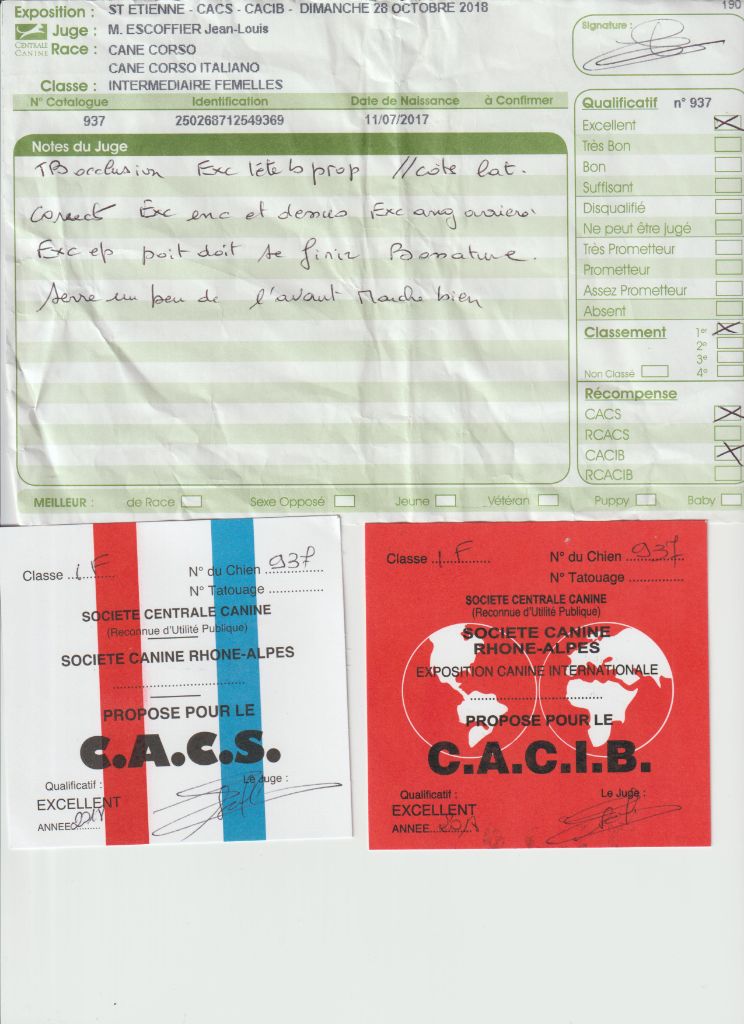 190
Exposition : ST ETIENNE - CACS - CACIB - DIMANCHE 28 OCTOBRE 2018
Juge : M. ESCOFFIER Jean-Louis
CENTRALE CANINE
Race : CANE CORSO
CANE CORSO ITALIANO
Classe : INTERMEDIAIRE FEMELLES
Signature :
N° Catalogue Identification Date de Naissance à Confirmer
937 250268712549369 11/07/2017
Notes du Juge
TB occlusion Exc tête b prop // côté lat.
Correct Exc enc et dessus Exc ang
Exc ep poit doit se finir Bossature.
serre un peu de l'avant Marche bien
Qualificatif n° 937
Excellent
Très Bon
Bon
Suffisant
Disqualifié
Ne peut être jugé
Très Prometteur
Prometteur
Assez Prometteur
Absent
Classement 1er
2e
3e
Non Classé 4e
Récompense
CACS
RCACS
CACIB
RCACIB
MEILLEUR : de Race Sexe Opposé Jeune Vétéran Puppy Baby
Classe ..I F..........
N° du Chien 937
N° Tatouage ..............
SOCIETE CENTRALE CANINE
(Reconnue d'Utilité Publique)
SOCIETE CANINE RHONE-ALPES
PROPOSE POUR LE
C.A.C.S.
Qualificatif :
EXCELLENT
Le Juge :
ANNEE
Classe ..I F..........
N° du Chien 937
N° Tatouage ..............
SOCIETE CENTRALE CANINE
(Reconnue d'Utilité Publique)
SOCIETE CANINE
RHONE-ALPES
EXPOSITION CANINE INTERNATIONALE
PROPOSE POUR LE
C.A.C.I.B.
Qualificatif :
EXCELLENT
Le Juge :
ANNEE